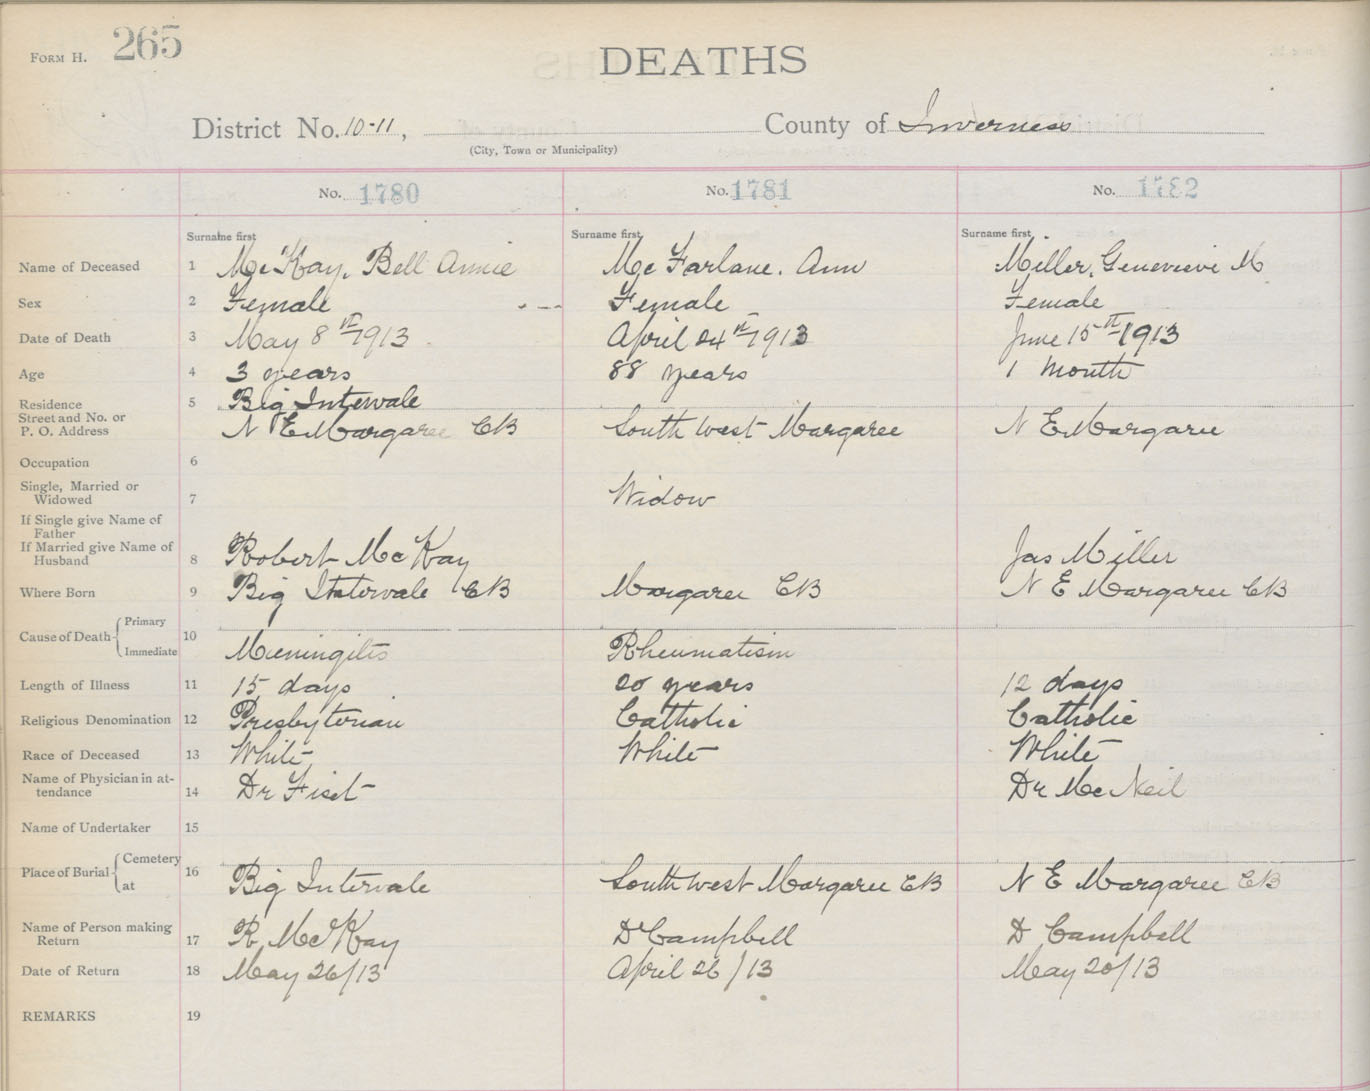 FORM H. 265
DEATHS
District No. 10-11, County of Inverness
(City, Town or Municipality)
No. 1780 No. 1781 No. 1782
Surname first Surname first Surname first
Name of Deceased 1 McKay, Bell Annie McFarlane. Ann Miller, Genevieve M
Sex 2 Female Female Female
Date of Death 3 May 8th 1913 April 24th 1913 June 15th 1913
Age 4 3 years 88 years 1 Month
Residence 5 Big Intervale
Street and No. or
P. O. Address N E Margaree CB South West Margaree N E Margaree
Occupation 6
Single, Married or
Widowed 7 Widow
If Single give Name of
Father
If Married give Name of
Husband 8 Robert McKay Jas Miller
Where Born 9 Big Intervale CB Margaree CB N E Margaree CB
Primary
Cause of Death 10
Immediate Mieningitis Rheumatism
Length of Illness 11 15 days 20 years 12 days
Religious Denomination 12 Presbyterian Catholic Catholic
Race of Deceased 13 White White White
Name of Physician in at-
tendance 14 Dr Fiset Dr McNeil
Name of Undertaker 15
Cemetery
Place of Burial 16
at Big Intervale South west Margaree CB N E Margaree CB
Name of Person making
Return 17 R. McKay D Campbell D Campbell
Date of Return 18 May 26/13 April 26/13 May 20/13
REMARKS 19